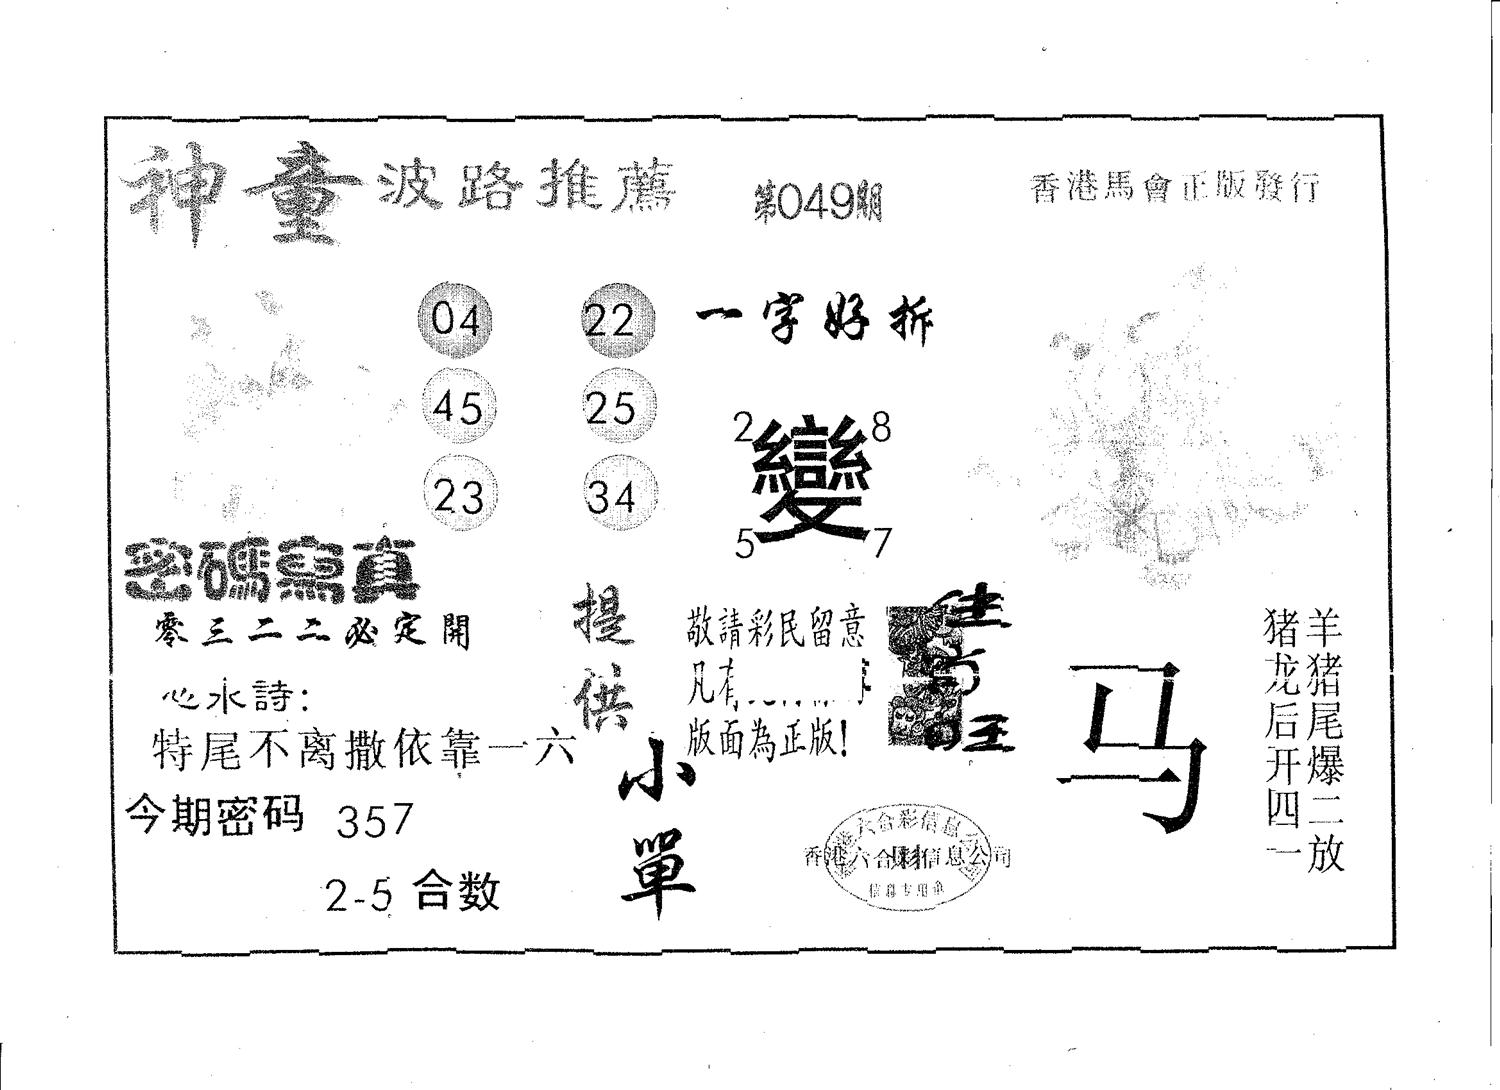 神童波路推薦
第049期
香港馬會正版發行
04 22
45 25
23 34
一字好拆
2 8
變
5 7
密碼寫真
零三二二必定開
心水詩:
特尾不离撒依靠一六
今期密码 357
2-5 合数
提供
小單
敬請彩民留意
凡有
版面為正版!
马
羊猪尾爆二放
猪龙后开四一
香港六合彩信息公司